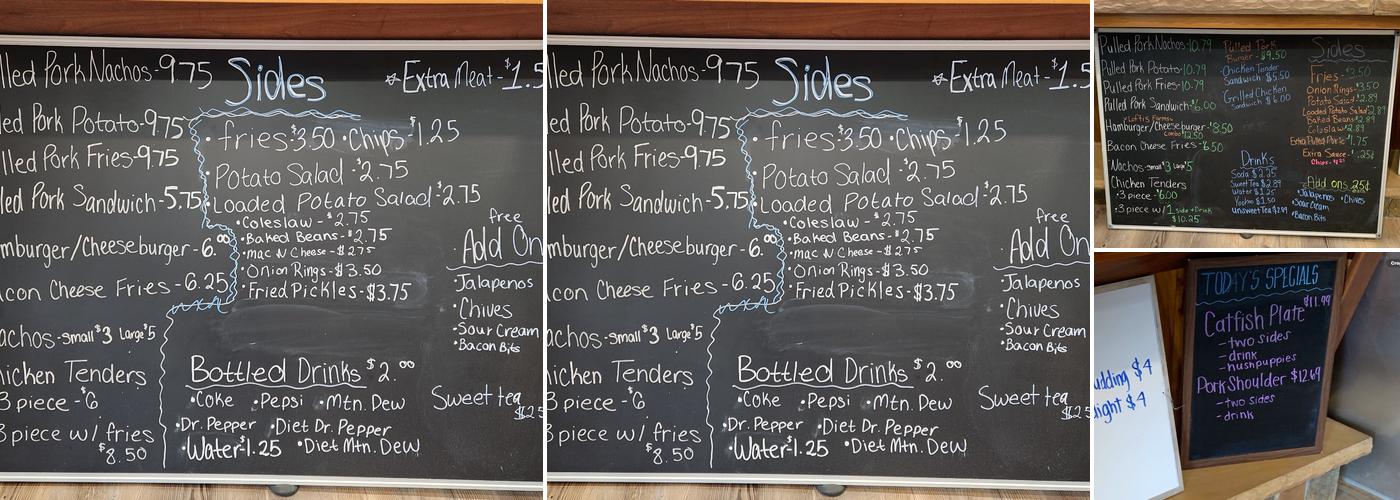 lled Pork Nachos-9.75
led Pork Potato-9.75
lled Pork Fries-9.75
led Pork Sandwich-5.75
mburger/Cheeseburger-6.00
acon Cheese Fries-6.25
achos-small $3 Large $5
hicken Tenders
3 piece-$6
3 piece w/ fries
$8.50
Sides
• fries-$3.50 • Chips-$1.25
• Potato Salad-$2.75
• Loaded Potato Salad-$2.75
• Coleslaw-$2.75
• Baked Beans-$2.75
• mac N Cheese-$2.75
• Onion Rings-$3.50
• Fried Pickles-$3.75
Bottled Drinks $2.00
• Coke • Pepsi • Mtn. Dew
• Dr. Pepper • Diet Dr. Pepper
• Water-$1.25 • Diet Mtn. Dew
Extra Meat-$1.5
free
Add On
• Jalapenos
• Chives
• Sour Cream
• Bacon Bits
Sweet tea
lled Pork Nachos-9.75
led Pork Potato-9.75
lled Pork Fries-9.75
led Pork Sandwich-5.75
mburger/Cheeseburger-6.00
acon Cheese Fries-6.25
achos-small $3 Large $5
hicken Tenders
3 piece-$6
3 piece w/ fries
$8.50
Sides
• fries-$3.50 • Chips-$1.25
• Potato Salad-$2.75
• Loaded Potato Salad-$2.75
• Coleslaw-$2.75
• Baked Beans-$2.75
• mac N Cheese-$2.75
• Onion Rings-$3.50
• Fried Pickles-$3.75
Bottled Drinks $2.00
• Coke • Pepsi • Mtn. Dew
• Dr. Pepper • Diet Dr. Pepper
• Water-$1.25 • Diet Mtn. Dew
Extra Meat-$1.5
free
Add On
• Jalapenos
• Chives
• Sour Cream
• Bacon Bits
Sweet tea
Pulled Pork Nachos-10.79
Pulled Pork Potato-10.79
Pulled Pork Fries-10.79
Pulled Pork Sandwich-$6.00
Hamburger/Cheeseburger-$8.50
Bacon Cheese Fries-$6.50
Nachos-small $3 Large $5
Chicken Tenders
• 3 piece-$6.00
• 3 piece w/ 1 side + Drink
$10.25
Pulled Pork
Burger-$9.50
Chicken Tender
Sandwich $5.50
Grilled Chicken
Sandwich $6.00
Drinks
Soda $2.25
Sweet Tea $2.89
Water $1.25
Yoohoo $1.50
Unsweet Tea $2.89
Sides
Fries-$3.50
Onion Rings-$3.50
Potato Salad-$2.89
Loaded Potato Salad $2.89
Baked Beans-$2.89
Coleslaw-$2.89
Extra Pulled Pork-$1.75
Extra Sauce-$.25¢
Add ons 25¢
• Jalapenos • Chives
• Sour Cream
• Bacon Bits
udding $4
ight $4
TODAY'S SPECIALS
$11.99
Catfish Plate
- two sides
- drink
- hushpuppies
Pork Shoulder $12.69
- two sides
- drink